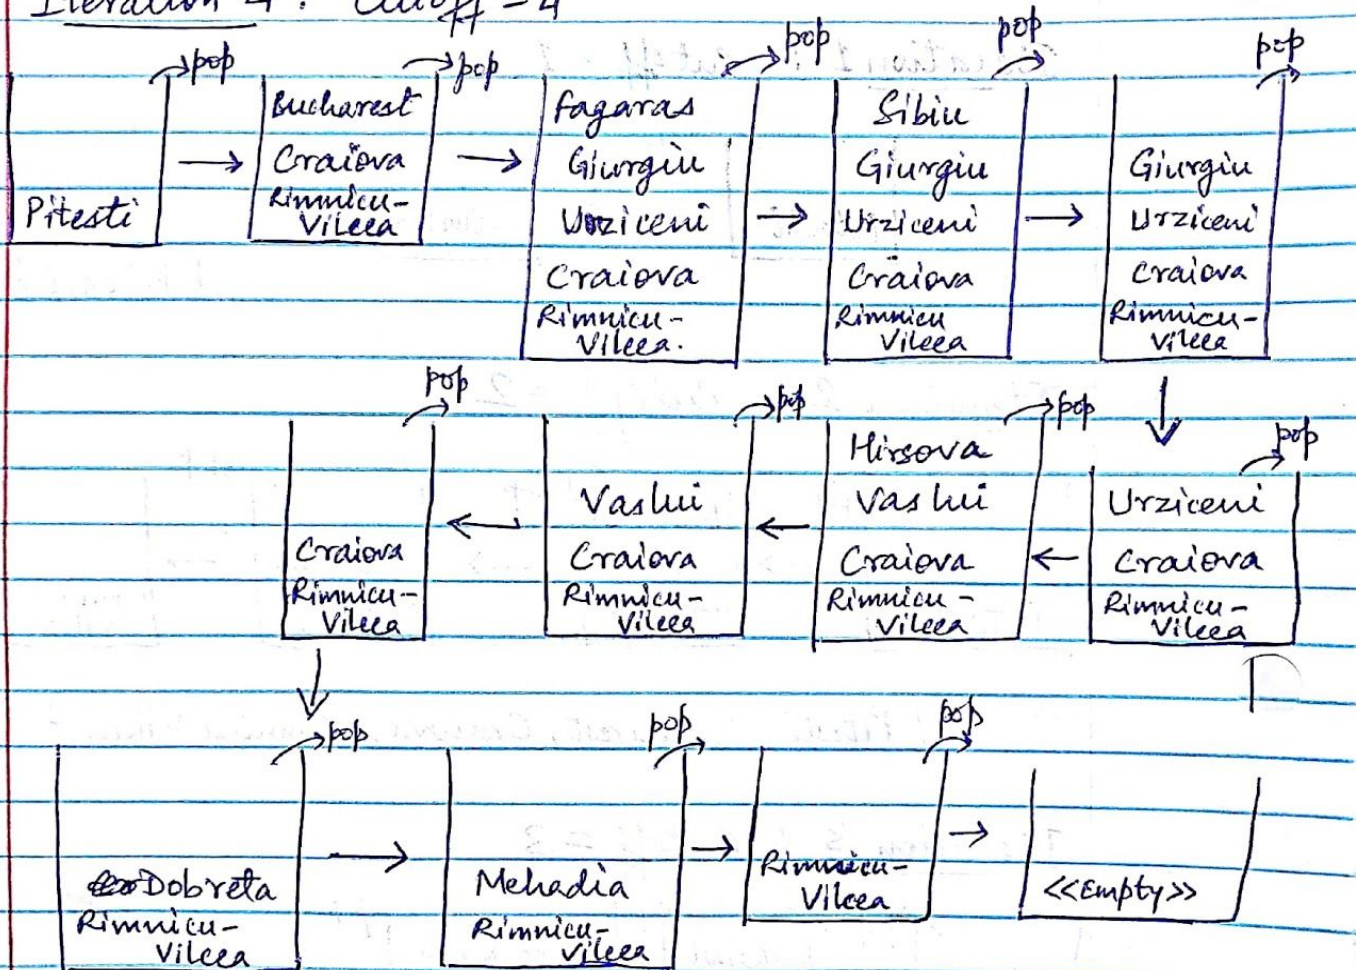 Iteration 4 : Cutoff = 4
pop
pop
pop
pop
pop
Pitesti
Bucharest
Craiova
Rimnicu-
Vilcea
Fagaras
Giurgiu
Urziceni
Craiova
Rimnicu-
Vilcea.
Sibiu
Giurgiu
Urziceni
Craiova
Rimnicu
Vilcea
Giurgiu
Urziceni
Craiova
Rimnicu-
Vilcea
pop
pop
pop
pop
Craiova
Rimnicu-
Vilcea
Vaslui
Craiova
Rimnicu-
Vilcea
Hirsova
Vaslui
Craiova
Rimnicu-
Vilcea
Urziceni
Craiova
Rimnicu-
Vilcea
pop
pop
pop
Dobreta
Rimnicu-
Vilcea
Mehadia
Rimnicu-
Vilcea
Rimnicu-
Vilcea
<<Empty>>